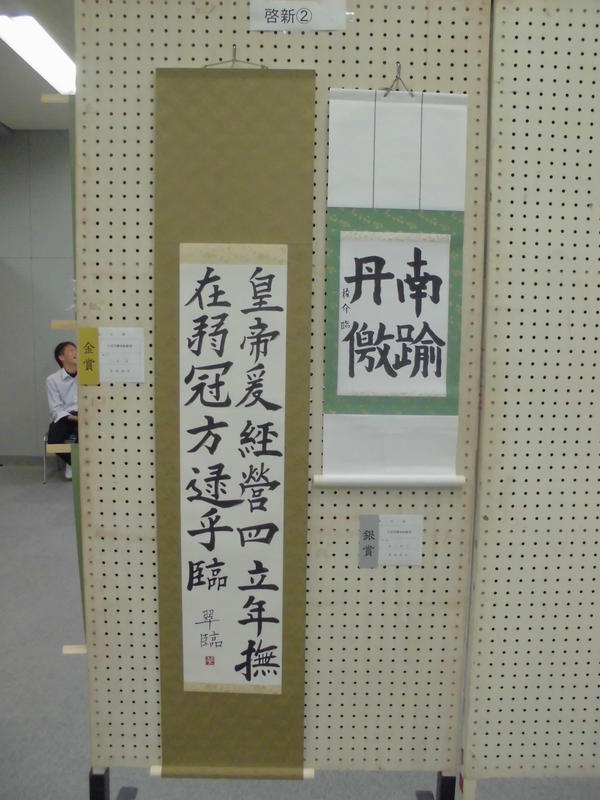 啓新②
皇帝爰經營四立年撫
在弱冠方逮乎臨
翠臨
南踰
丹儌
介臨
金賞
銀賞